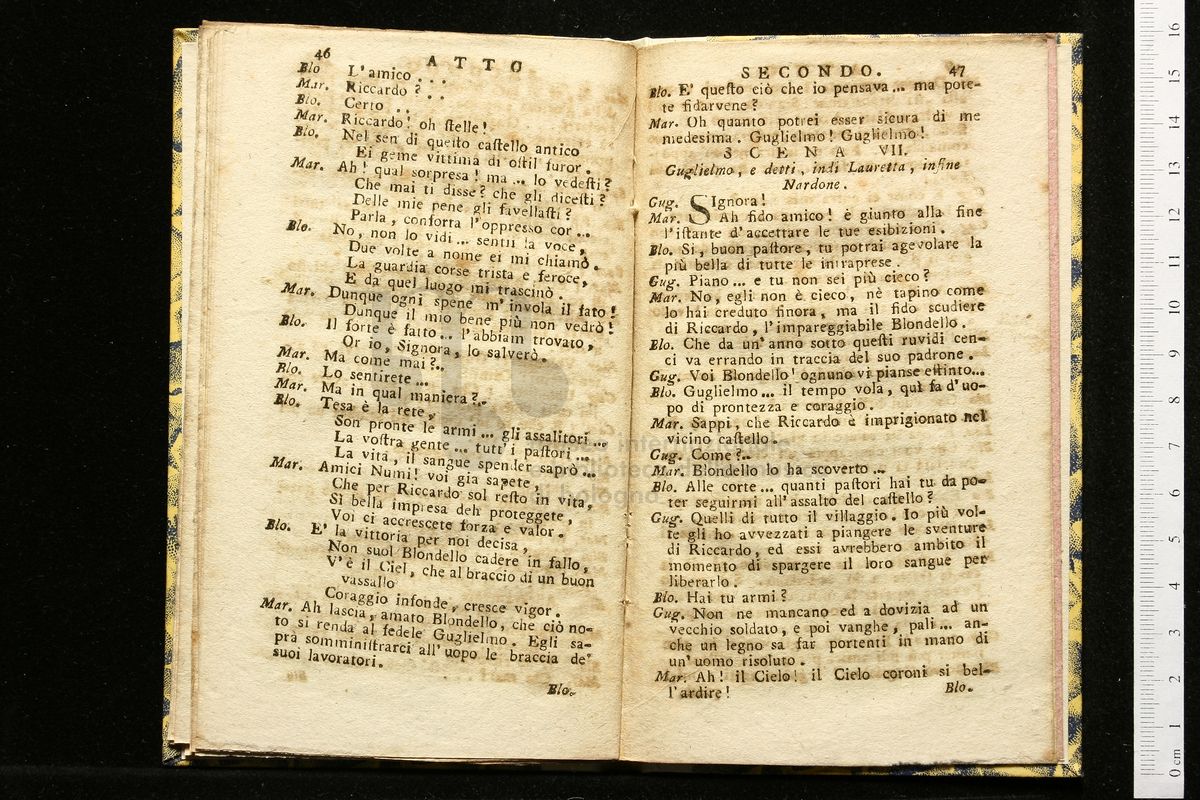 46
ATTO
Blo L'amico . . .
Mar. Riccardo ? . .
Blo. Certo . .
Mar. Riccardo! oh stelle!
Blo. Nel sen di questo castello antico
Ei geme vittima di ostil furor.
Mar. Ah! qual sorpresa! ma ... lo vedesti?
Che mai ti disse? che gli dicesti?
Delle mie pene gli favellasti?
Parla, conforta l'oppresso cor ...
Blo. No, non lo vidi ... sentii la voce,
Due volte a nome ei mi chiamò.
La guardia corse trista e feroce,
E da quel luogo mi trascinò.
Mar. Dunque ogni spene m'invola il fato!
Dunque il mio bene più non vedrò!
Blo. Il forte è fatto... l'abbiam trovato,
Or io, Signora, lo salverò.
Mar. Ma come mai?..
Blo. Lo sentirete ...
Mar. Ma in qual maniera?..
Blo. Tesa è la rete,
Son pronte le armi ... gli assalitori ...
La vostra gente ... tutt'i pastori ...
La vita, il sangue spender saprò ...
Mar. Amici Numi! voi gia sapete,
Che per Riccardo sol resto in vita,
Sì bella impresa deh proteggete,
Voi ci accrescete forza e valor.
Blo. E' la vittoria per noi decisa,
Non suol Blondello cadere in fallo,
V'è il Ciel, che al braccio di un buon
vassallo
Coraggio infonde, cresce vigor.
Mar. Ah lascia, amato Blondello, che ciò no-
to si renda al fedele Guglielmo. Egli sa-
prà somministrarci all'uopo le braccia de'
suoi lavoratori.
Blo.
SECONDO.
47
Blo. E' questo ciò che io pensava ... ma pote-
te fidarvene?
Mar. Oh quanto potrei esser sicura di me
medesima. Guglielmo! Guglielmo!
SCENA VII.
Guglielmo, e detti, indi Lauretta, infine
Nardone.
Gug. SIgnora!
Mar. Ah fido amico! è giunto alla fine
l'istante d'accettare le tue esibizioni.
Blo. Si, buon pastore, tu potrai agevolare la
più bella di tutte le intraprese.
Gug. Piano ... e tu non sei più cieco?
Mar. No, egli non è cieco, nè tapino come
lo hai creduto finora, ma il fido scudiere
di Riccardo, l'impareggiabile Blondello.
Blo. Che da un'anno sotto questi ruvidi cen-
ci va errando in traccia del suo padrone.
Gug. Voi Blondello! ognuno vi pianse estinto...
Blo. Guglielmo ... il tempo vola, quì fa d'uo-
po di prontezza e coraggio.
Mar. Sappi, che Riccardo è imprigionato nel
vicino castello.
Gug. Come?..
Mar. Blondello lo ha scoverto ...
Blo. Alle corte ... quanti pastori hai tu da po-
ter seguirmi all'assalto del castello?
Gug. Quelli di tutto il villaggio. Io più vol-
te gli ho avvezzati a piangere le sventure
di Riccardo, ed essi avrebbero ambito il
momento di spargere il loro sangue per
liberarlo.
Blo. Hai tu armi?
Gug. Non ne mancano ed a dovizia ad un
vecchio soldato, e poi vanghe, pali ... an-
che un legno sa far portenti in mano di
un'uomo risoluto.
Mar. Ah! il Cielo! il Cielo coroni sì bel-
l'ardire!
Blo.
0 cm 1 2 3 4 5 6 7 8 9 10 11 12 13 14 15 16